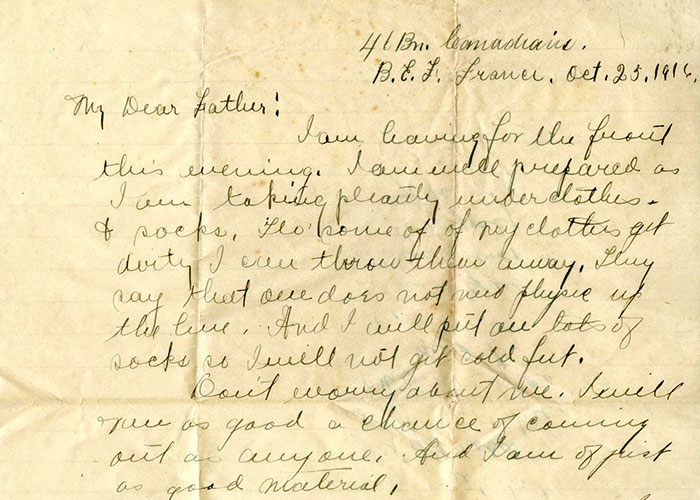 46 Bn. Canadians.
B.E.F. France. Oct. 25, 1916.
My Dear Father!
I am leaving for the front
this evening. I am well prepared as
I am taking pleanty underclothes.
& socks. some of of my clothes get
dirty I can throw them away. They
say that one does not need physic up
the line. And I will put on lots of
socks so I will not get cold feet.
Don't worry about me. I will
run as good a chance of coming
out as anyone. And I am of just
as good material.